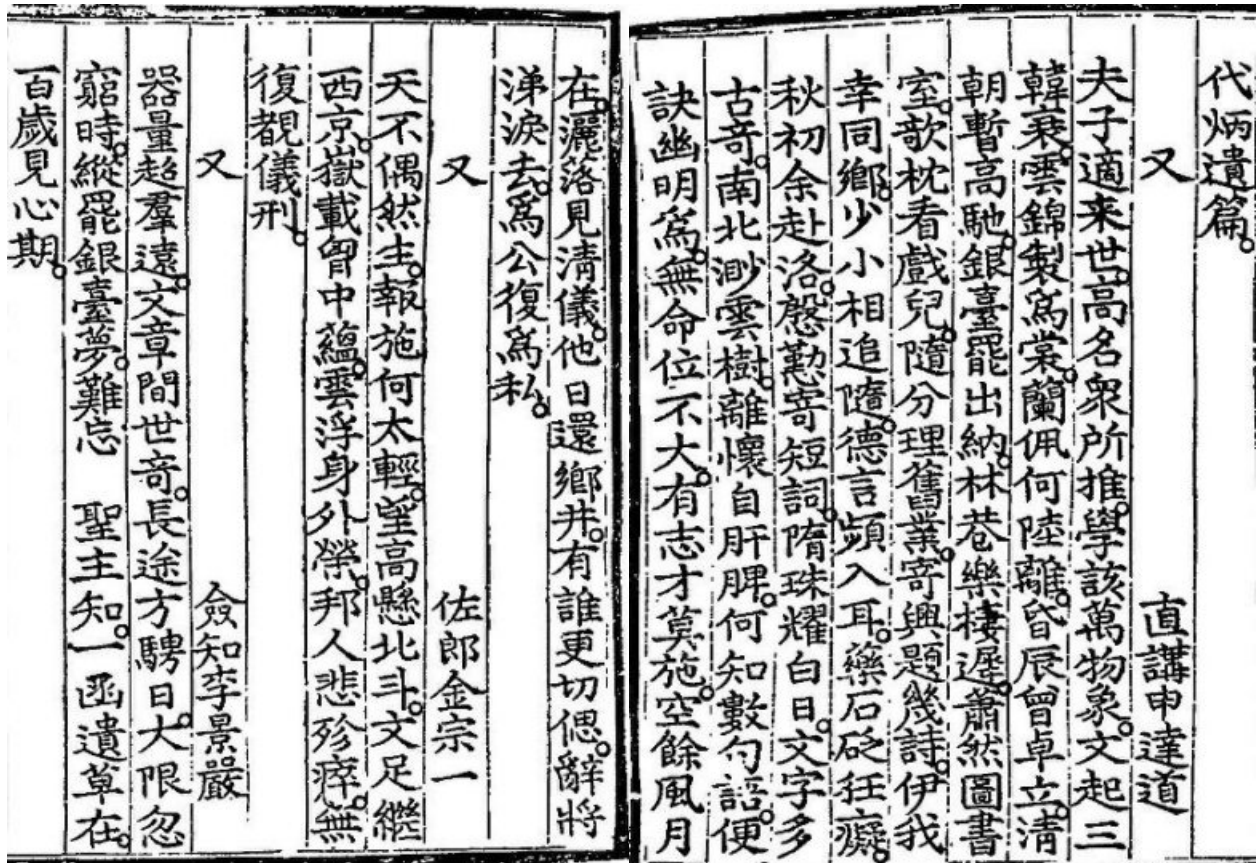 代炳遺篇。
又 直講申達道
夫子適来世。高名衆所推。學該萬物象。文起三
韓衰。雲錦製爲裳。蘭佩何陸離。昏辰曾卓立。清
朝暫高馳。銀臺罷出納。林巷樂棲遲。蕭然圖書
室。欹枕看戲兒。隨分理舊業。寄興題幾詩。伊我
幸同鄉。少小相追隨。德言頻入耳。藥石砭狂癡。
秋初余赴洛。慇懃寄短詞。隋珠耀白日。文字多
古奇。南北渺雲樹。離懷自肝脾。何知數句語。便
訣幽明爲。無命位不大。有志才莫施。空餘風月
在。灑落見淸儀。他日還鄉井。有誰更切偲。辭將
涕淚去。爲公復爲私。
又 佐郎金宗一
天不偶然生。報施何太輕。望高懸北斗。文足繼
西京。嶽載胷中蘊。雲浮身外榮。邦人悲殄瘁。無
復覩儀刑。
又 僉知李景嚴
器量超羣遠。文章間世奇。長途方騁日。大限忽
窮時。縱罷銀臺夢。難忘 聖主知。一函遺草在。
百歲見心期。